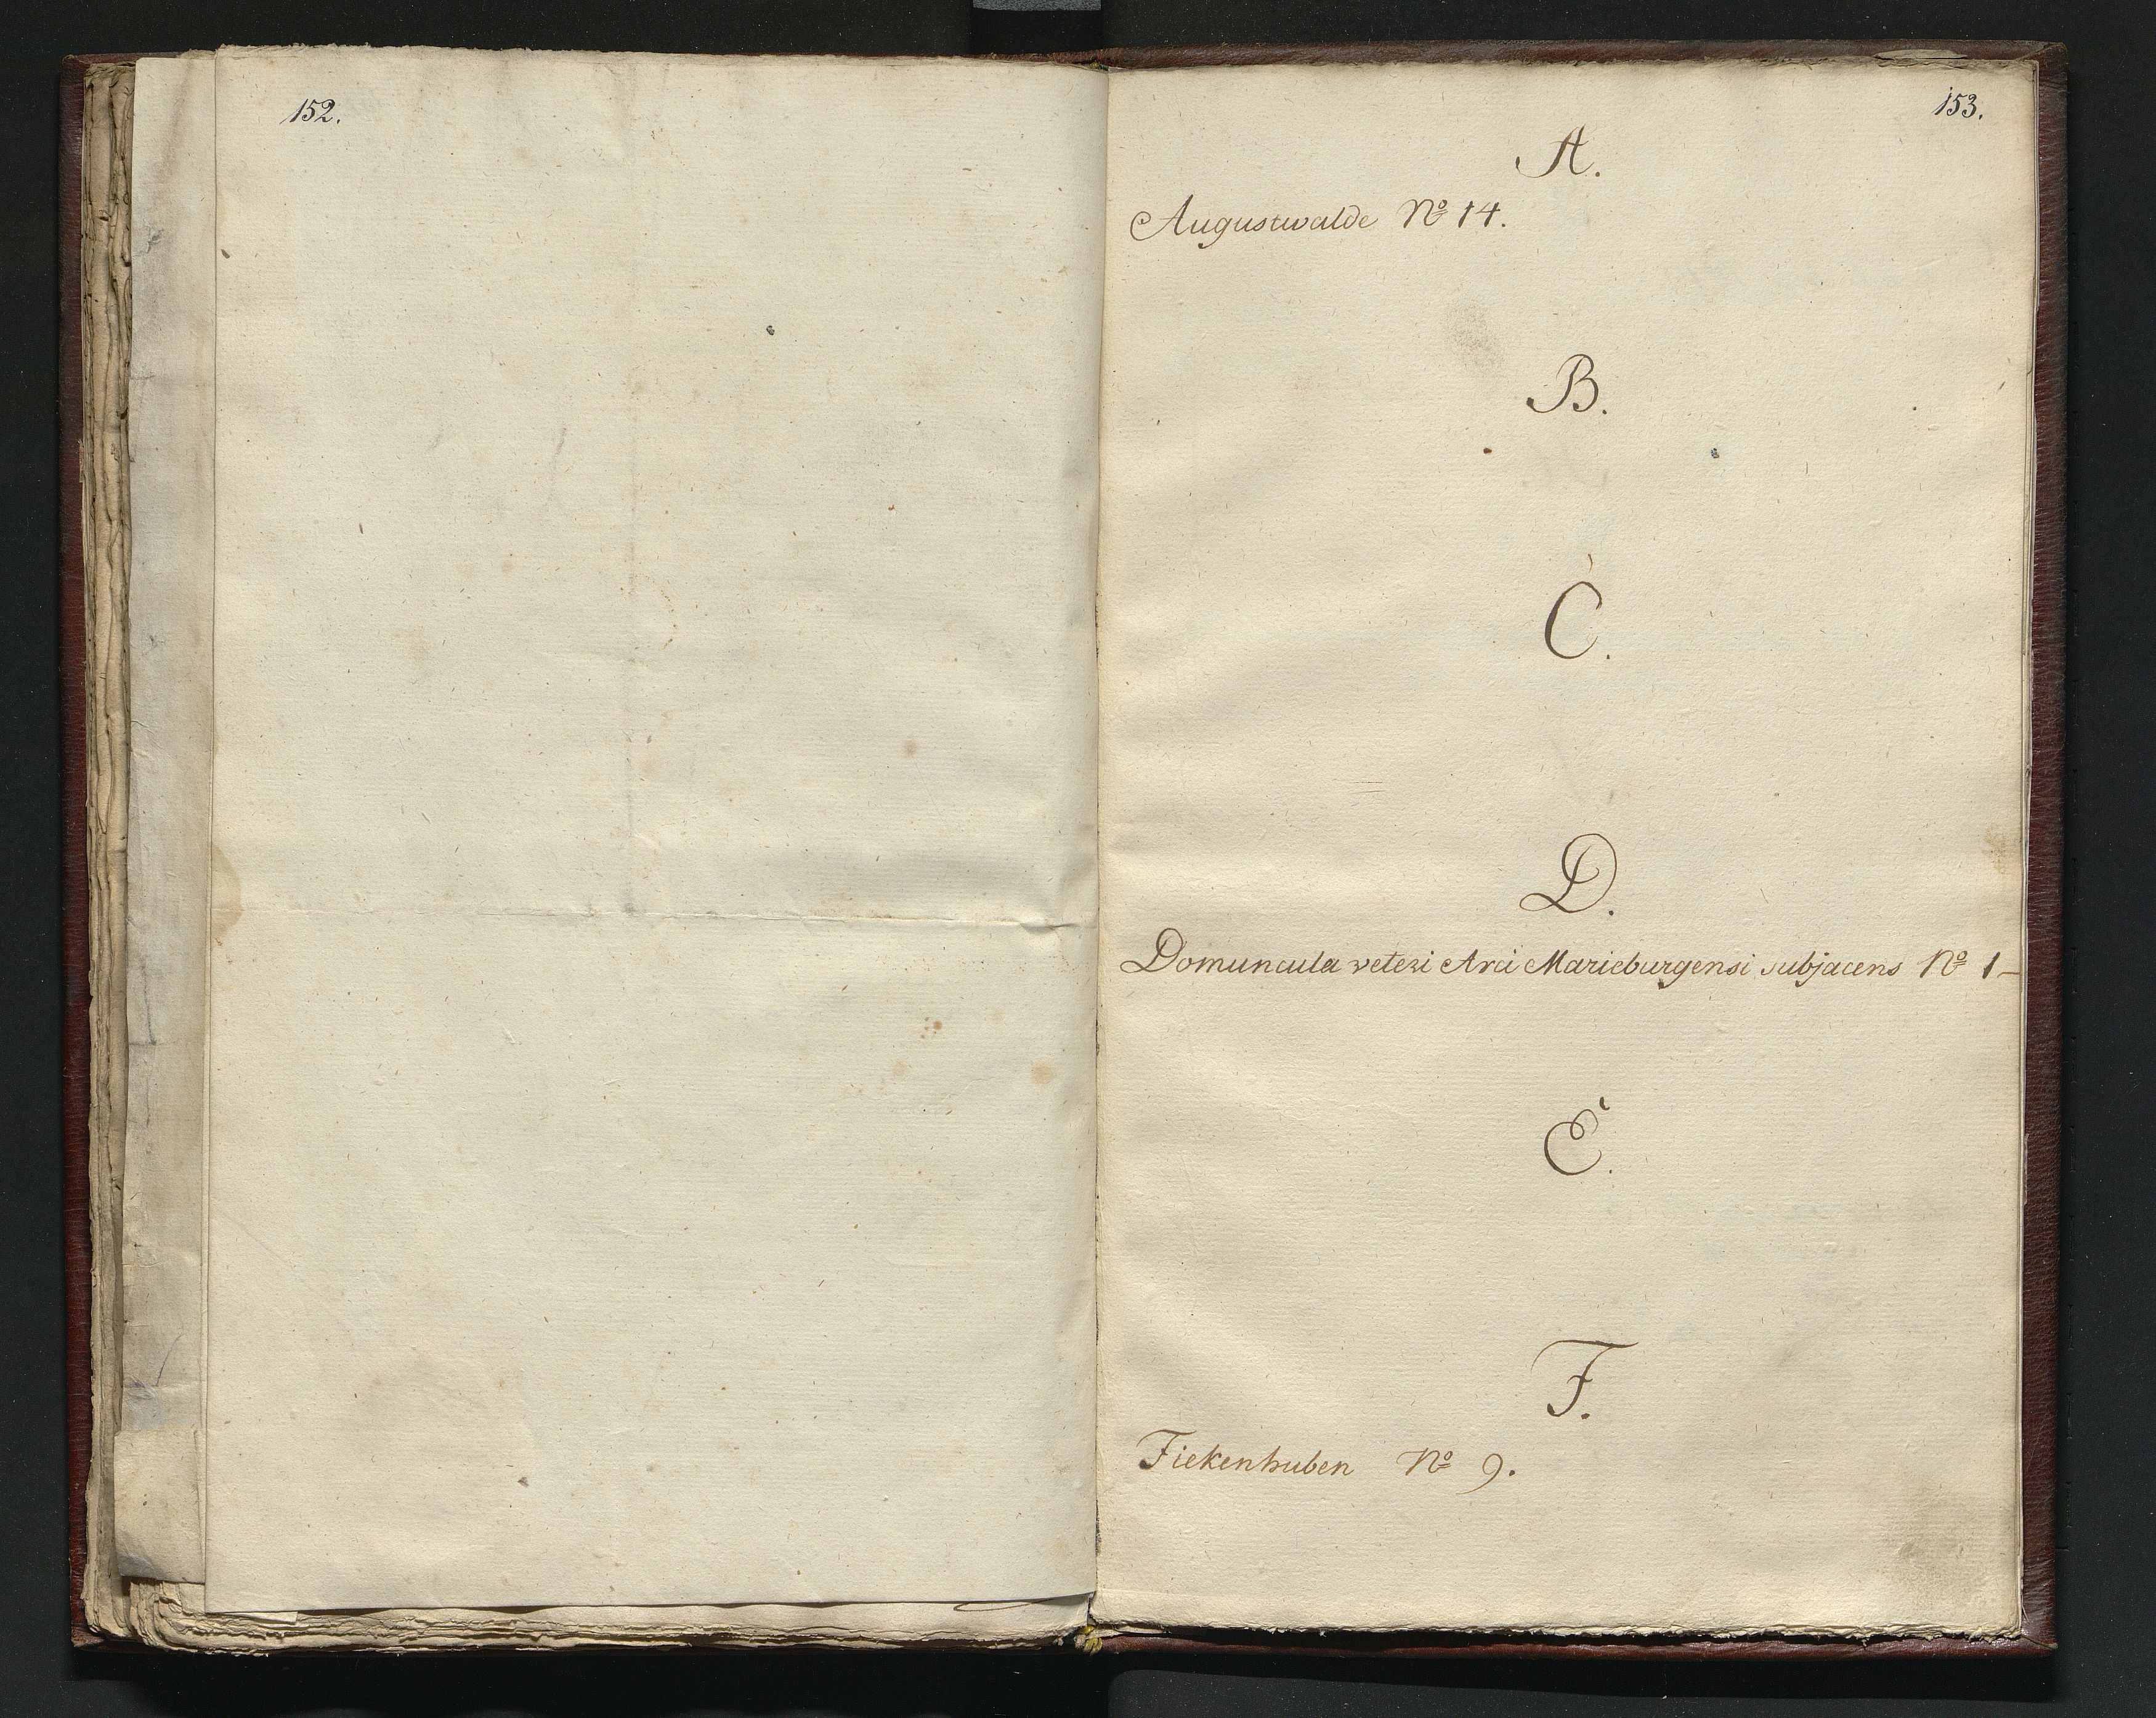 152.
153.
A.
Augustwalde No 14.
B.
C.
D.
Domuncula veteri Arci Marieburgensi subjacens No 1-
E.
F.
Fiekenhuben No 9.